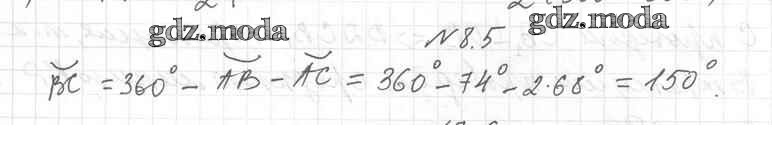 gdz.moda
gdz.moda
N 8.5
BC = 360° - AB - AC = 360° - 74° - 2·68° = 150°.